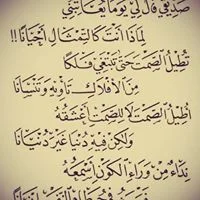 صَدِيقِي قَالَ لِي يَوْمًا يُعَاتِبُنِي
لِمَاذَا أَنْتَ كَالتِّمْثَالِ أَحْيَانًا !!
تُطِيلُ الصَّمْتَ حَتَّى تَبْتَغِي فَلَكًا
مِنَ الأَفْلَاكِ تَأْوِيهِ وَتَنْسَانَا
أُطِيلُ الصَّمْتَ لَا لِلصَّمْتِ أَعْشَقُهُ
وَلٰكِنْ فِيهِ دُنْيَا غَيْرُ دُنْيَانَا
نِدَاءٌ مِنْ وَرَاءِ الكَوْنِ أَسْمَعُهُ